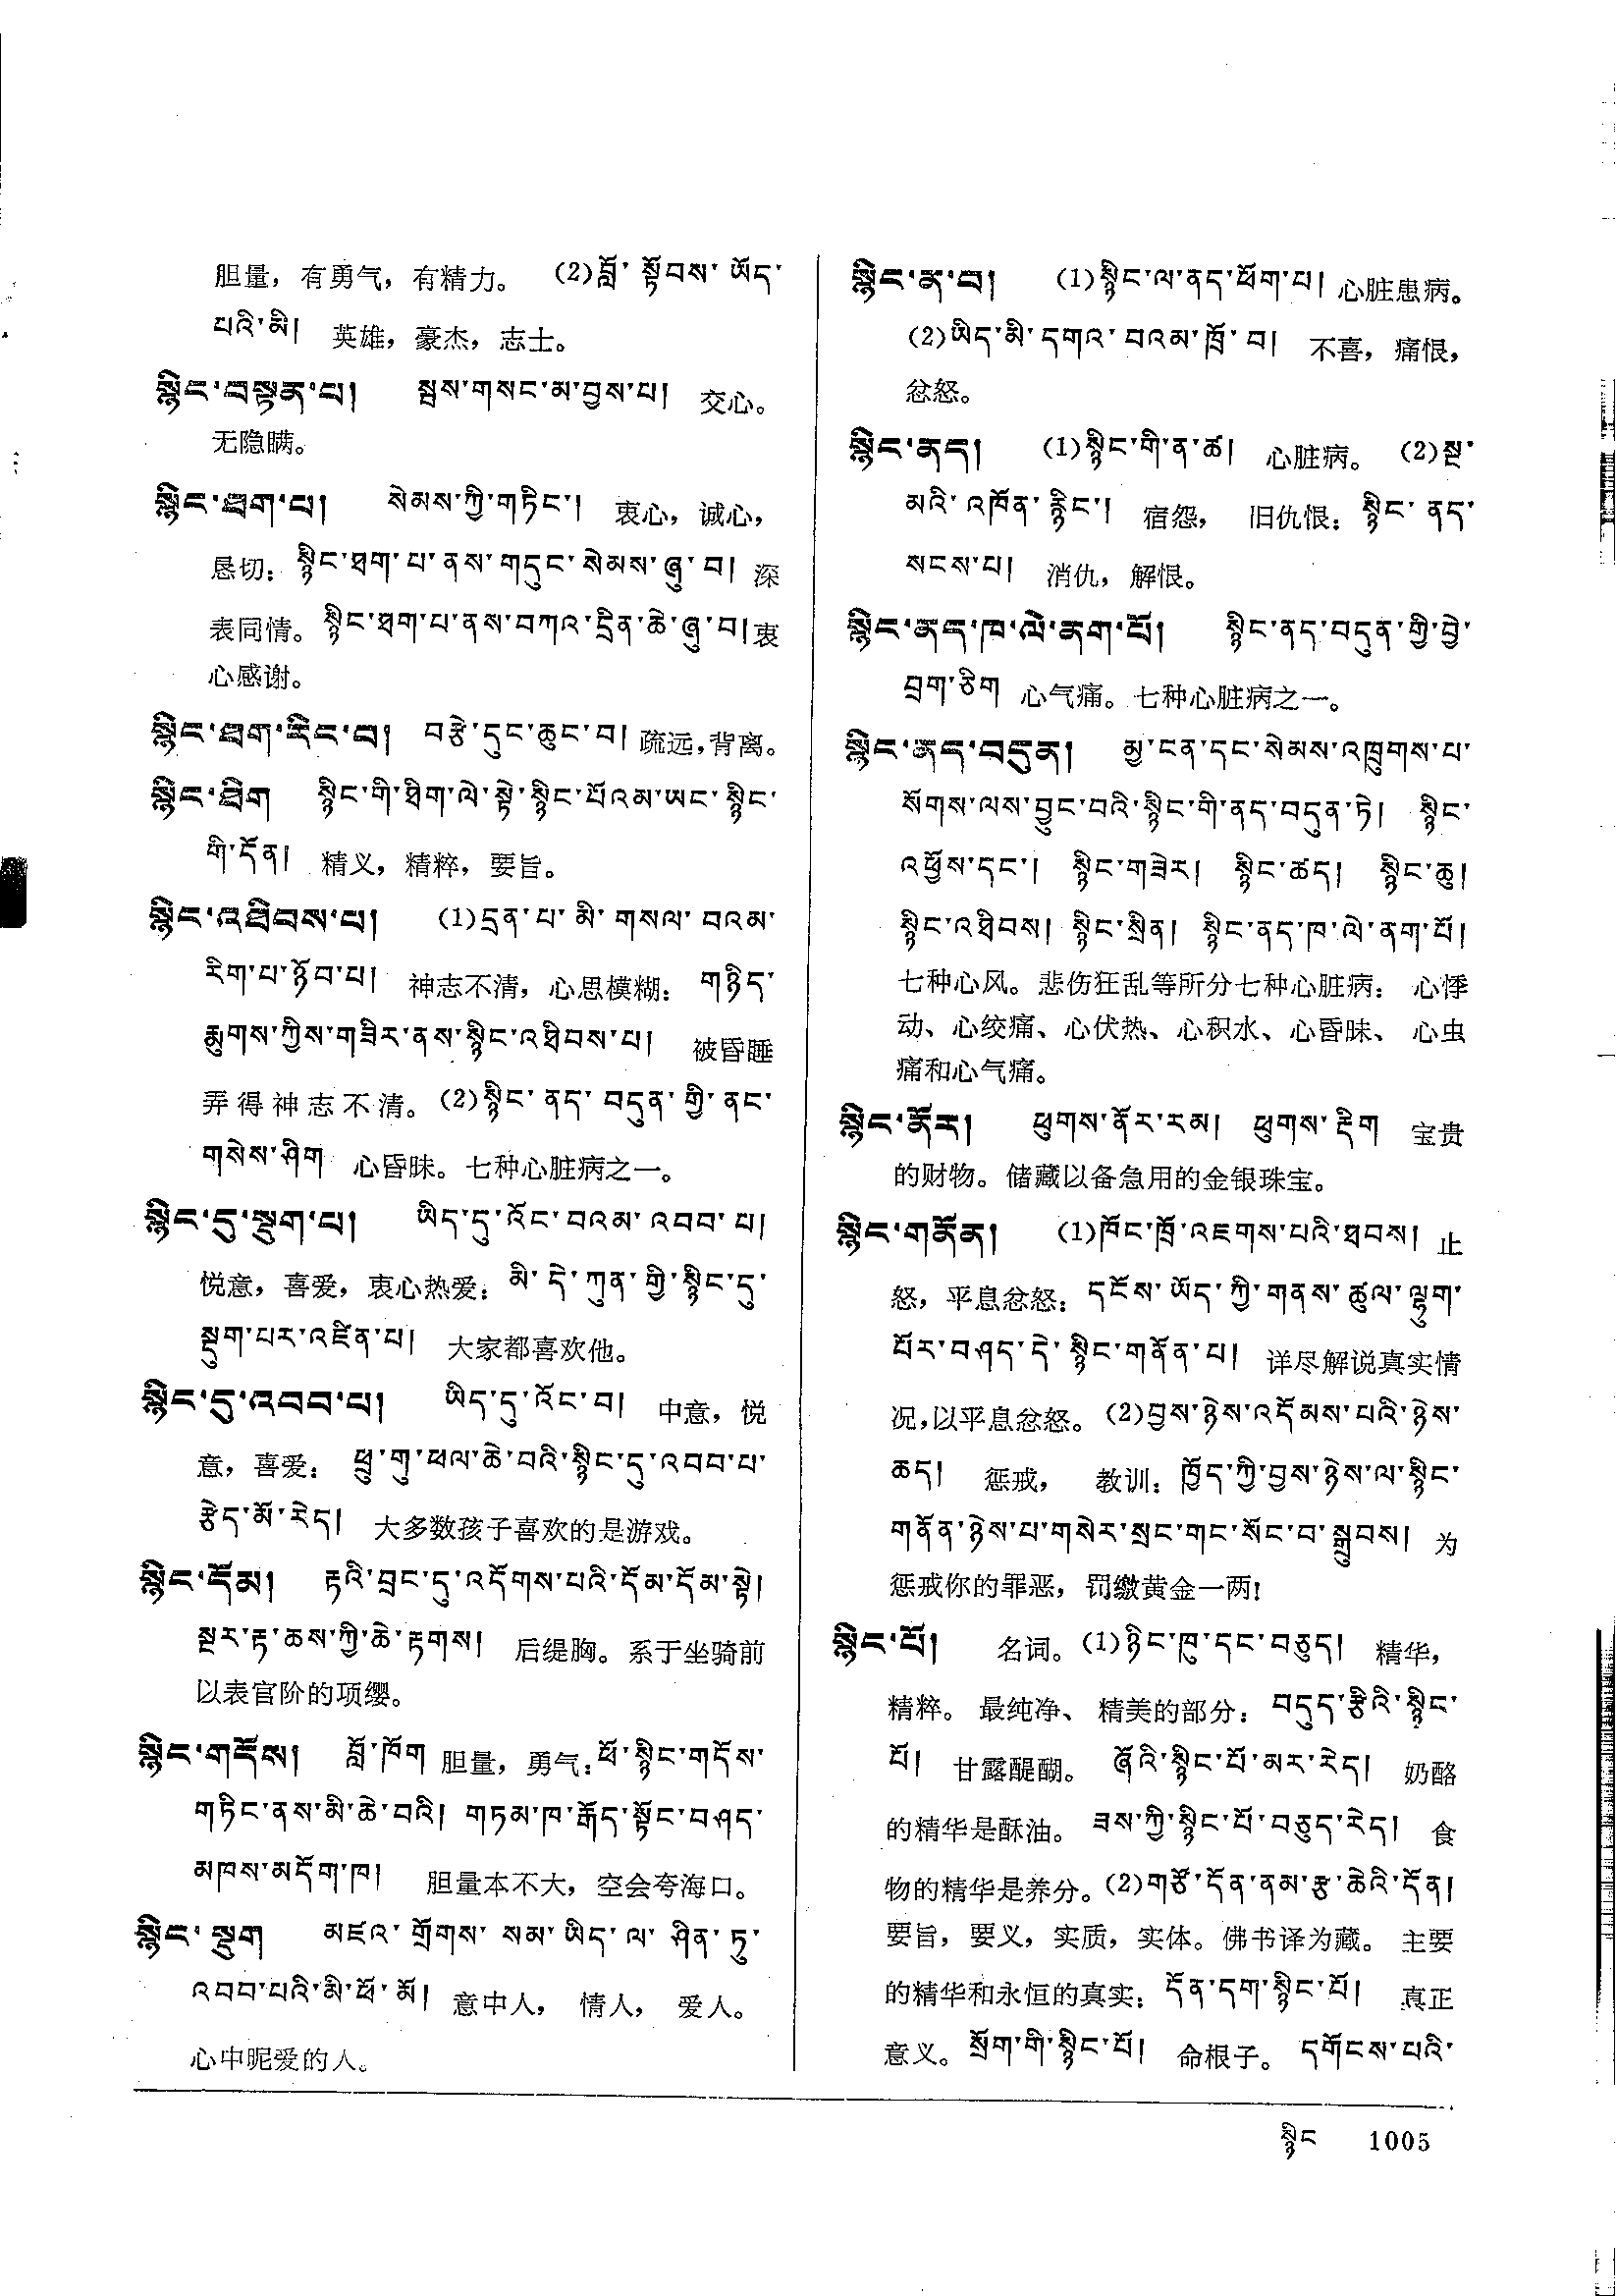 胆量，有勇气，有精力。 (2)བློ་ སྟོབས་ ཡོད་
པའི་མི། 英雄，豪杰，志士。
སྙིང་བསྟན་པ། སྦས་གསང་མ་བྱས་པ། 交心。
无隐瞒。
སྙིང་ཐག་པ། སེམས་ཀྱི་གཏིང་། 衷心，诚心，
恳切：སྙིང་ཐག་པ་ནས་གདུང་སེམས་ཞུ་བ། 深
表同情。སྙིང་ཐག་པ་ནས་བཀའ་དྲིན་ཆེ་ཞུ་བ།衷
心感谢。
སྙིང་ཐག་རིང་བ། བརྩེ་དུང་ཆུང་བ། 疏远，背离。
སྙིང་ཐིག སྙིང་གི་ཐིག་ལེ་སྟེ་སྙིང་པོའམ་ཡང་སྙིང་
གི་དོན། 精义，精粹，要旨。
སྙིང་འཐིབས་པ། (1)དྲན་པ་མི་གསལ་བའམ་
རིག་པ་ཉོབ་པ། 神志不清，心思模糊： གཉིད་
རྨུགས་ཀྱིས་གཟིར་ནས་སྙིང་འཐིབས་པ། 被昏睡
弄得神志不清。(2)སྙིང་ནད་བདུན་གྱི་ནང་
གསེས་ཤིག 心昏昧。七种心脏病之一。
སྙིང་དུ་སྡུག་པ། ཡིད་དུ་འོང་བའམ་འབབ་པ།
悦意，喜爱，衷心热爱：མི་དེ་ཀུན་གྱི་སྙིང་དུ་
སྡུག་པར་འཛིན་པ། 大家都喜欢他。
སྙིང་དུ་འབབ་པ། ཡིད་དུ་འོང་བ། 中意，悦
意，喜爱： ཕྲུ་གུ་ཕལ་ཆེ་བའི་སྙིང་དུ་འབབ་པ་
རྩེད་མོ་རེད། 大多数孩子喜欢的是游戏。
སྙིང་དོམ། རྟའི་བྲང་དུ་འདོགས་པའི་དོམ་དོམ་སྟེ།
སྔར་རྟ་ཆས་ཀྱི་ཆེ་རྟགས། 后缇胸。系于坐骑前
以表官阶的项缨。
སྙིང་གདོས། བློ་ཁོག 胆量，勇气：ཕོ་སྙིང་གདོས་
གཏིང་ནས་མི་ཆེ་བའི། གཏམ་ཁ་རྒོད་སྟོང་བཤད་
མཁས་མདོག་ཁ། 胆量本不大，空会夸海口。
སྙིང་སྡུག མཛའ་གྲོགས་སམ་ཡིད་ལ་ཤིན་ཏུ་
འབབ་པའི་མི་ཕོ་མོ། 意中人， 情人， 爱人。
心中昵爱的人。
སྙིང་ན་བ། (1)སྙིང་ལ་ནད་ཕོག་པ། 心脏患病。
(2)ཡིད་མི་དགའ་བའམ་ཁྲོ་བ། 不喜，痛恨，
忿怒。
སྙིང་ནད། (1)སྙིང་གི་ན་ཚ། 心脏病。 (2)སྔ་
མའི་འཁོན་རྙིང་། 宿怨， 旧仇恨：སྙིང་ནད་
སངས་པ། 消仇，解恨。
སྙིང་ནད་ཁ་ལེ་ནག་པོ། སྙིང་ནད་བདུན་གྱི་བྱེ་
བྲག་ཅིག 心气痛。七种心脏病之一。
སྙིང་ནད་བདུན། མྱ་ངན་དང་སེམས་འཁྲུགས་པ་
སོགས་ལས་བྱུང་བའི་སྙིང་གི་ནད་བདུན་ཏེ། སྙིང་
འཕྱོས་དང་། སྙིང་གཟེར། སྙིང་ཚད། སྙིང་ཆུ།
སྙིང་འཐིབས། སྙིང་སྲིན། སྙིང་ནད་ཁ་ལེ་ནག་པོ།
七种心风。悲伤狂乱等所分七种心脏病： 心悸
动、心绞痛、心伏热、心积水、心昏昧、 心虫
痛和心气痛。
སྙིང་ནོར། ཕུགས་ནོར་རམ། ཕུགས་རྡིག 宝贵
的财物。储藏以备急用的金银珠宝。
སྙིང་གནོན། (1)ཁོང་ཁྲོ་འཇགས་པའི་ཐབས། 止
怒，平息忿怒：དངོས་ཡོད་ཀྱི་གནས་ཚུལ་ལྷུག་
པོར་བཤད་དེ་སྙིང་གནོན་པ། 详尽解说真实情
况，以平息忿怒。(2)བྱས་ཉེས་འདོམས་པའི་ཉེས་
ཆད། 惩戒， 教训：ཁྱོད་ཀྱི་བྱས་ཉེས་ལ་སྙིང་
གནོན་ཉེས་པ་གསེར་སྲང་གང་སོང་བ་སྒྲུབས། 为
惩戒你的罪恶，罚缴黄金一两！
སྙིང་པོ། 名词。(1)ཉིང་ཁུ་དང་བཅུད། 精华，
精粹。最纯净、精美的部分：བདུད་རྩིའི་སྙིང་
པོ། 甘露醍醐。 ཞོའི་སྙིང་པོ་མར་རེད། 奶酪
的精华是酥油。 ཟས་ཀྱི་སྙིང་པོ་བཅུད་རེད། 食
物的精华是养分。(2)གཙོ་དོན་ནམ་རྩ་ཆེའི་དོན།
要旨，要义，实质，实体。佛书译为藏。 主要
的精华和永恒的真实：དོན་དག་སྙིང་པོ། 真正
意义。སྲོག་གི་སྙིང་པོ། 命根子。 དགོངས་པའི་
སྙིང 1005